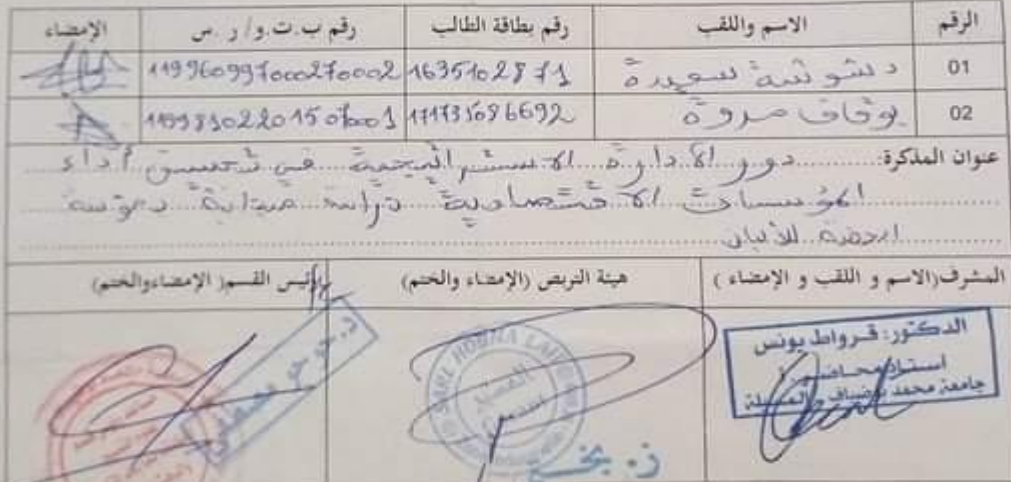 الرقم الاسم واللقب رقم بطاقة الطالب رقم ب.ت.و/ ر.س الإمضاء
01 دشوشة سعيدة 1635102871 119960997000270002
02 بوقاف مروة 171735086692
عنوان المذكرة: دور الادارة الاستراتيجية في تحسين أداء
المؤسسات الاقتصادية دراسة ميدانية
للألبان
المشرف(الاسم و اللقب و الإمضاء ) هيئة التربص (الإمضاء والختم) رئيس القسم( الإمضاء والختم)
الدكتور: قرواط يونس
أستاذ محاضر أ
جامعة محمد بوضياف المسيلة
SARL HODNA LAIT
المسيلة